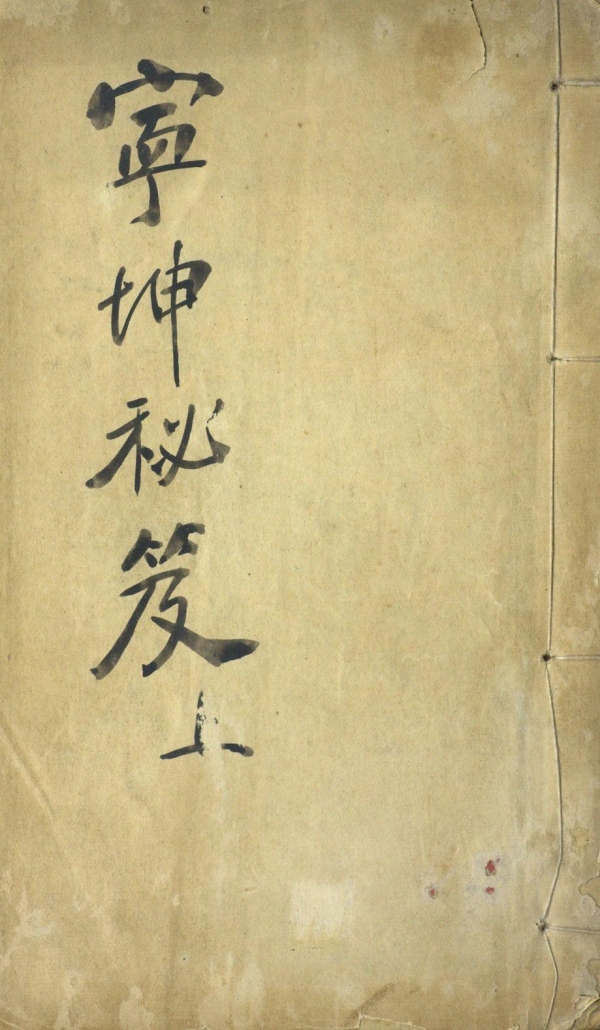 寧坤秘笈上